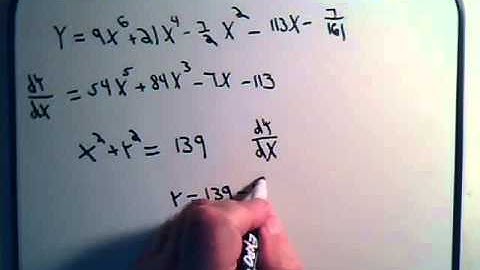 Y = 9x⁶ + 21x⁴ - 7/2 x² - 113x - 7/161
dY/dX = 54x⁵ + 84x³ - 7x - 113
x² + Y² = 139 dY/dX
Y = 139 -